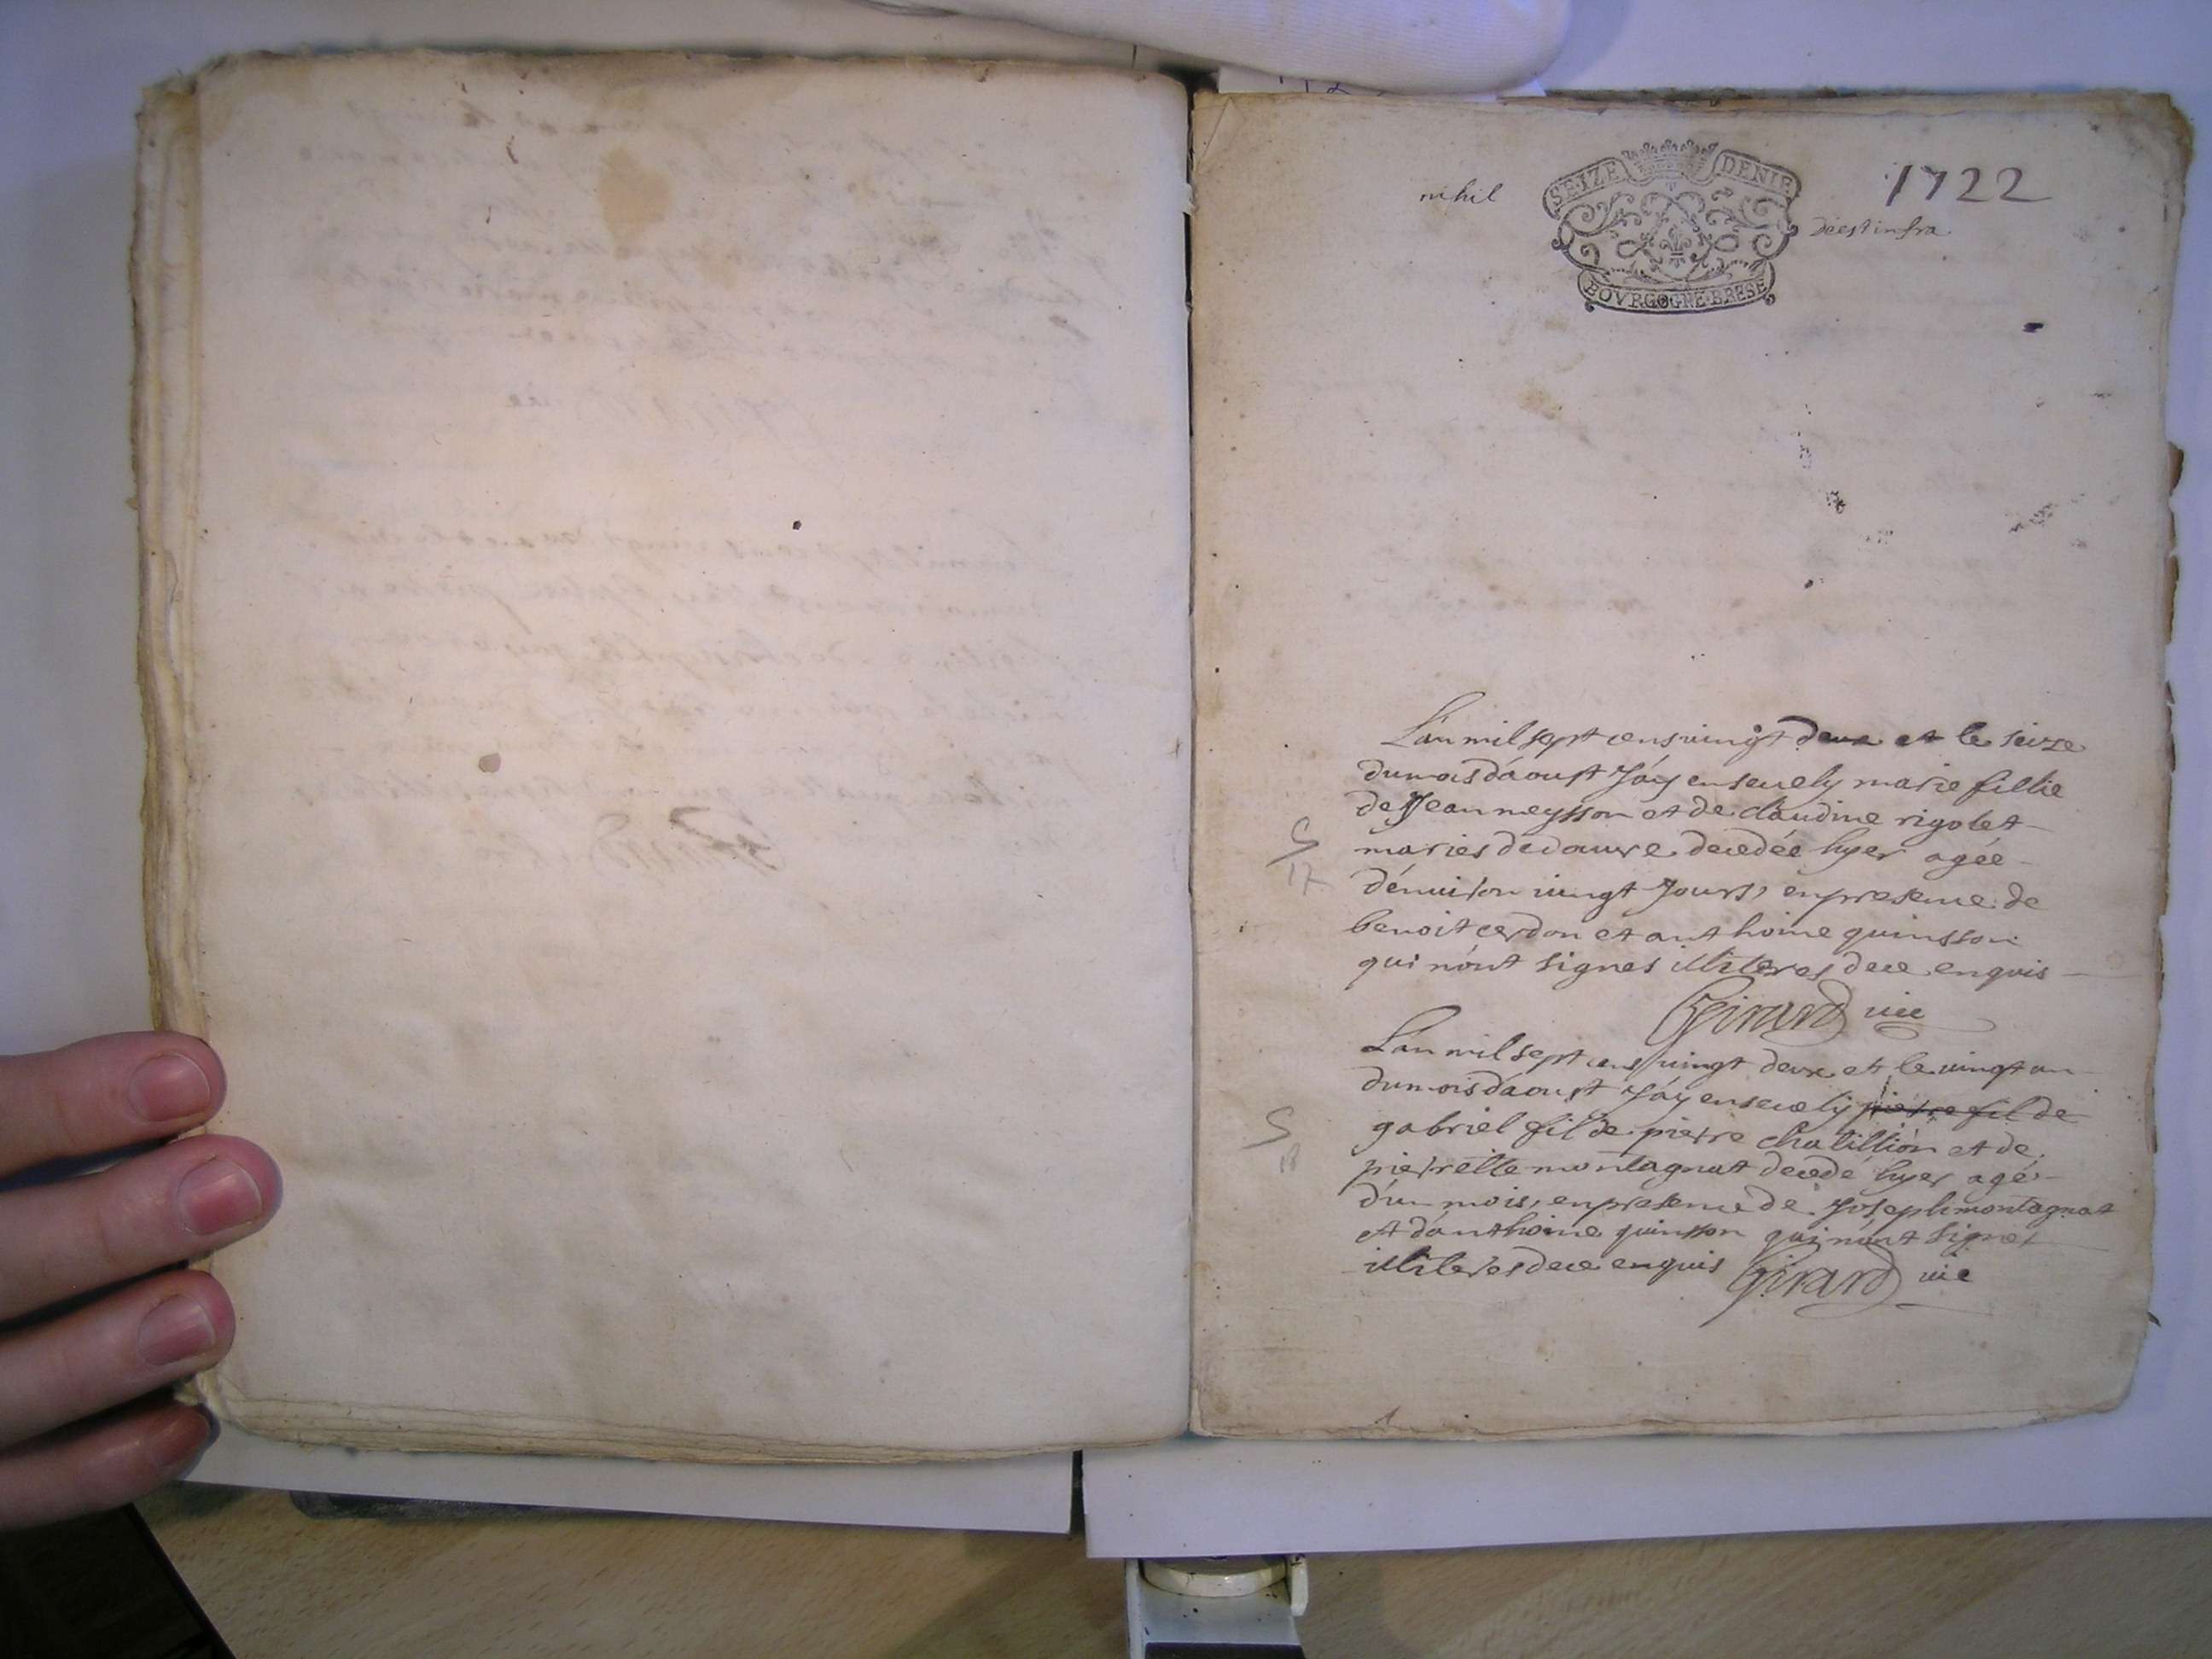 1722
nihil
SEIZE DENIE
deest infra
BOVRGOGNE·BRESE
L'an mil sept cens vingt deux et le seize
du mois d'aoust J'ay ensevely marie fillie
de Jean neysson et de claudine rigolet
maries de douvre decedée hyer agée
d'enviion vingt Jours, en presence de
benoit cerdon et anthoine quinsson
qui n'ont signes illiteres de ce enquis
S
17
Girard vic
L'an mil sept cens vingt deux et le vingt un
du mois d'aoust J'ay ensevely pierre fil de
gabriel fil de pierre chatillion et de
pierrette montagnat decedé hyer agé
d'un mois, en presence de Joseph montagnat
et d'anthoine quinsson qui n'ont signes
illiteres de ce enquis Girard vic
S
18